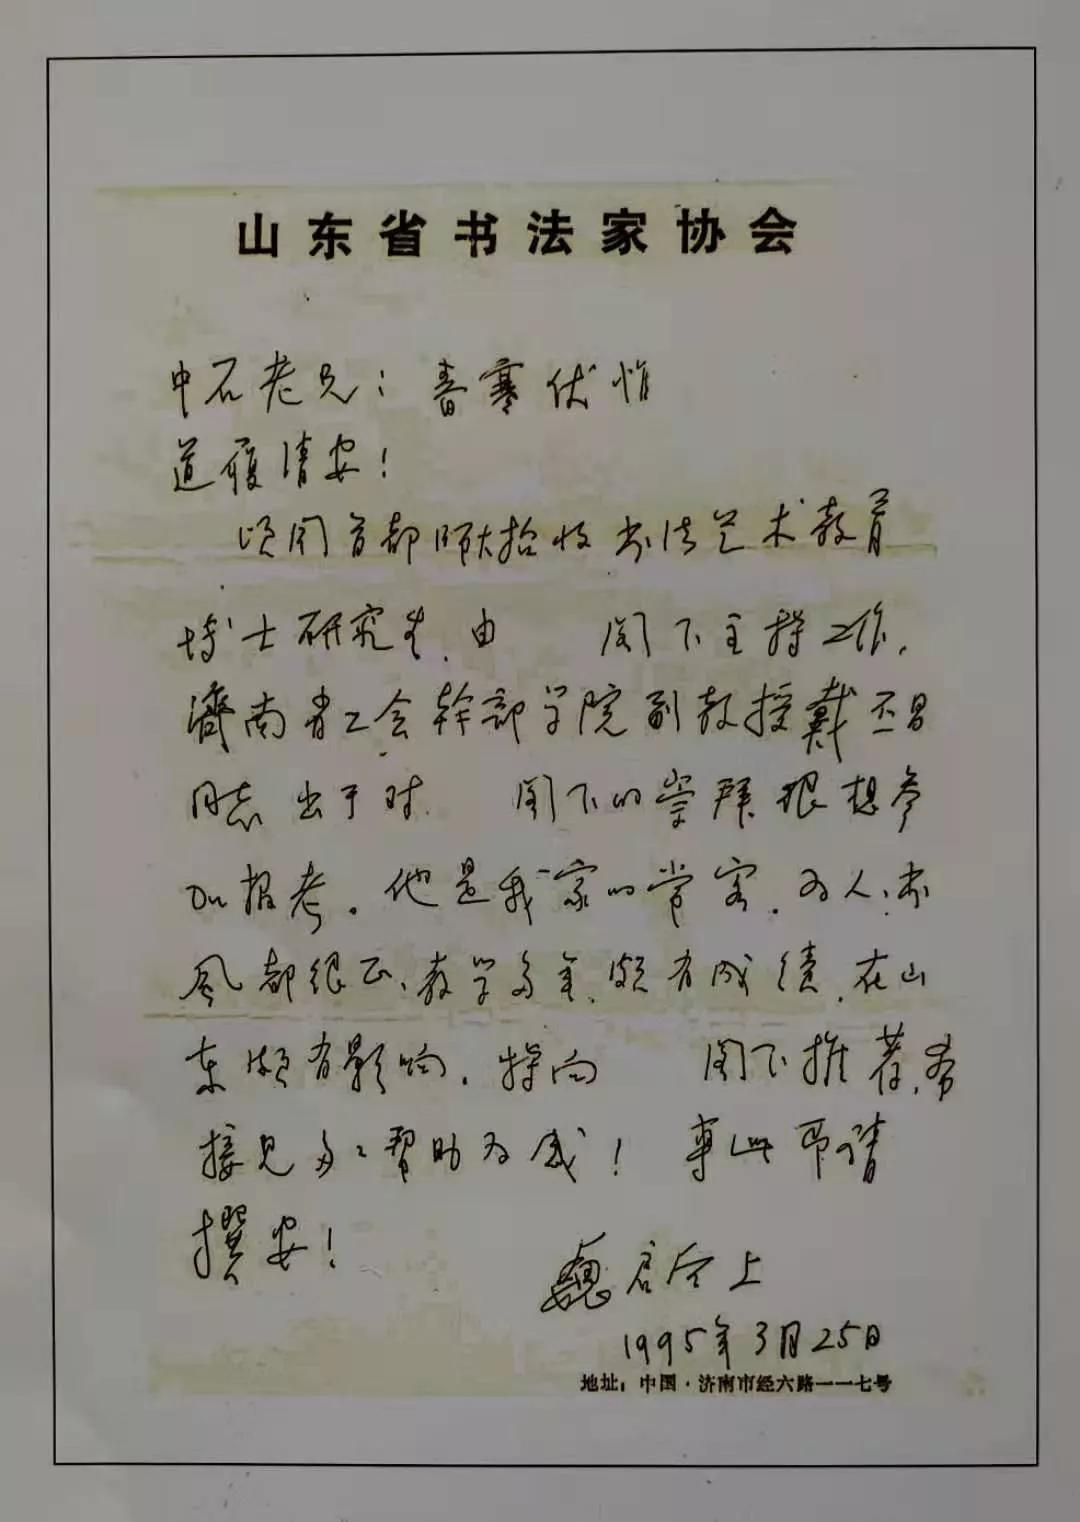 山东省书法家协会
中石老兄：春寒伏惟
道履清安！
顷闻首都师大招收书法艺术教育
博士研究生，由 阁下主持工作，
濟南省工会幹部学院副教授戴丕昌
同志出于对 阁下的崇拜很想参
加报考。他是我家的常客，为人、书
风都很正、教学多年，颇有成绩，在山
东颇有影响，特向 阁下推荐，希
接见多多帮助为感！ 专此 即请
撰安！
魏启后上
1995年3月25日
地址：中国·济南市经六路一一七号